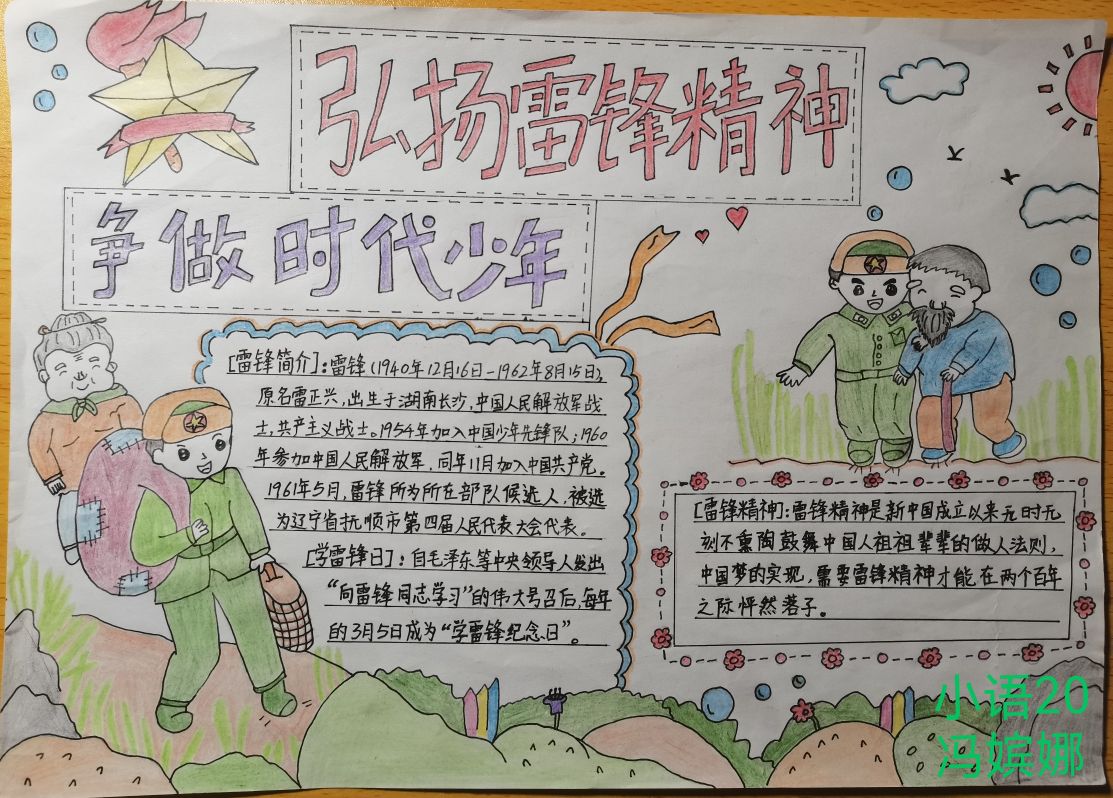 弘扬雷锋精神
争做时代少年
[雷锋简介]:雷锋(1940年12月16日-1962年8月15日),
原名雷正兴,出生于湖南长沙,中国人民解放军战
士,共产主义战士。1954年加入中国少年先锋队;1960
年参加中国人民解放军,同年11月加入中国共产党。
1961年5月,雷锋所为所在部队候选人,被选
为辽宁省抚顺市第四届人民代表大会代表。
[学雷锋日]:自毛泽东等中央领导人发出
“向雷锋同志学习”的伟大号召后,每年
的3月5日成为“学雷锋纪念日”。
[雷锋精神]:雷锋精神是新中国成立以来无时无
刻不熏陶鼓舞中国人祖祖辈辈的做人法则,
中国梦的实现,需要雷锋精神才能在两个百年
之际怦然落子。
小语20
冯嫔娜